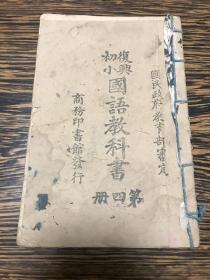 國民政府教育部審定
復興
初小
國語教科書
第四冊
商務印書館發行